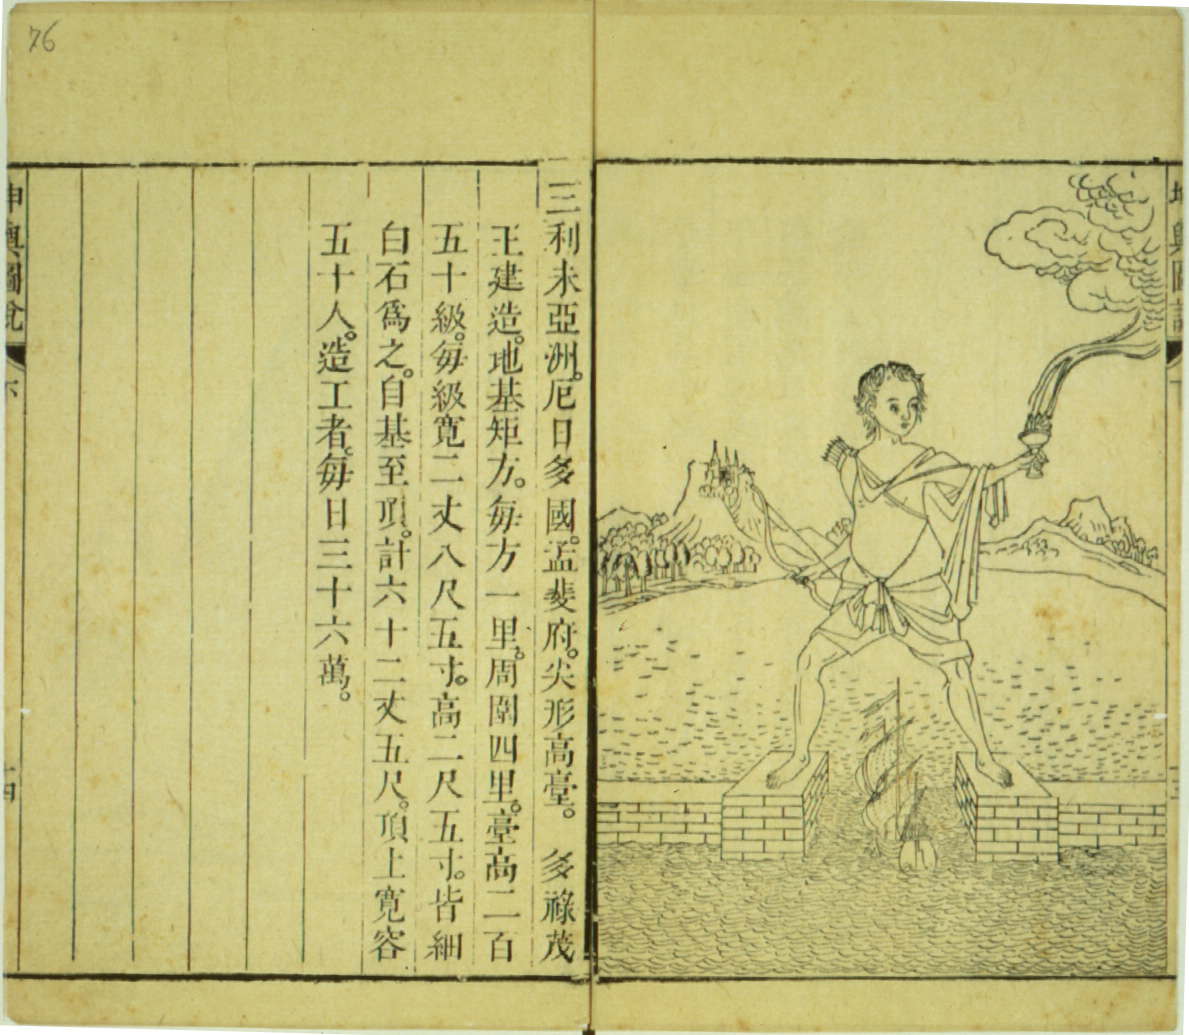 坤輿圖說
三利未亞洲。厄日多國。孟斐府。尖形高臺。 多祿茂
王建造。地基矩方。每方一里。周圍四里。臺高二百
五十級。每級寬二丈八尺五寸。高二尺五寸。皆細
白石爲之。自基至頂。計六十二丈五尺。頂上寬容
五十人。造工者。每日三十六萬。
坤輿圖說 下 四
76